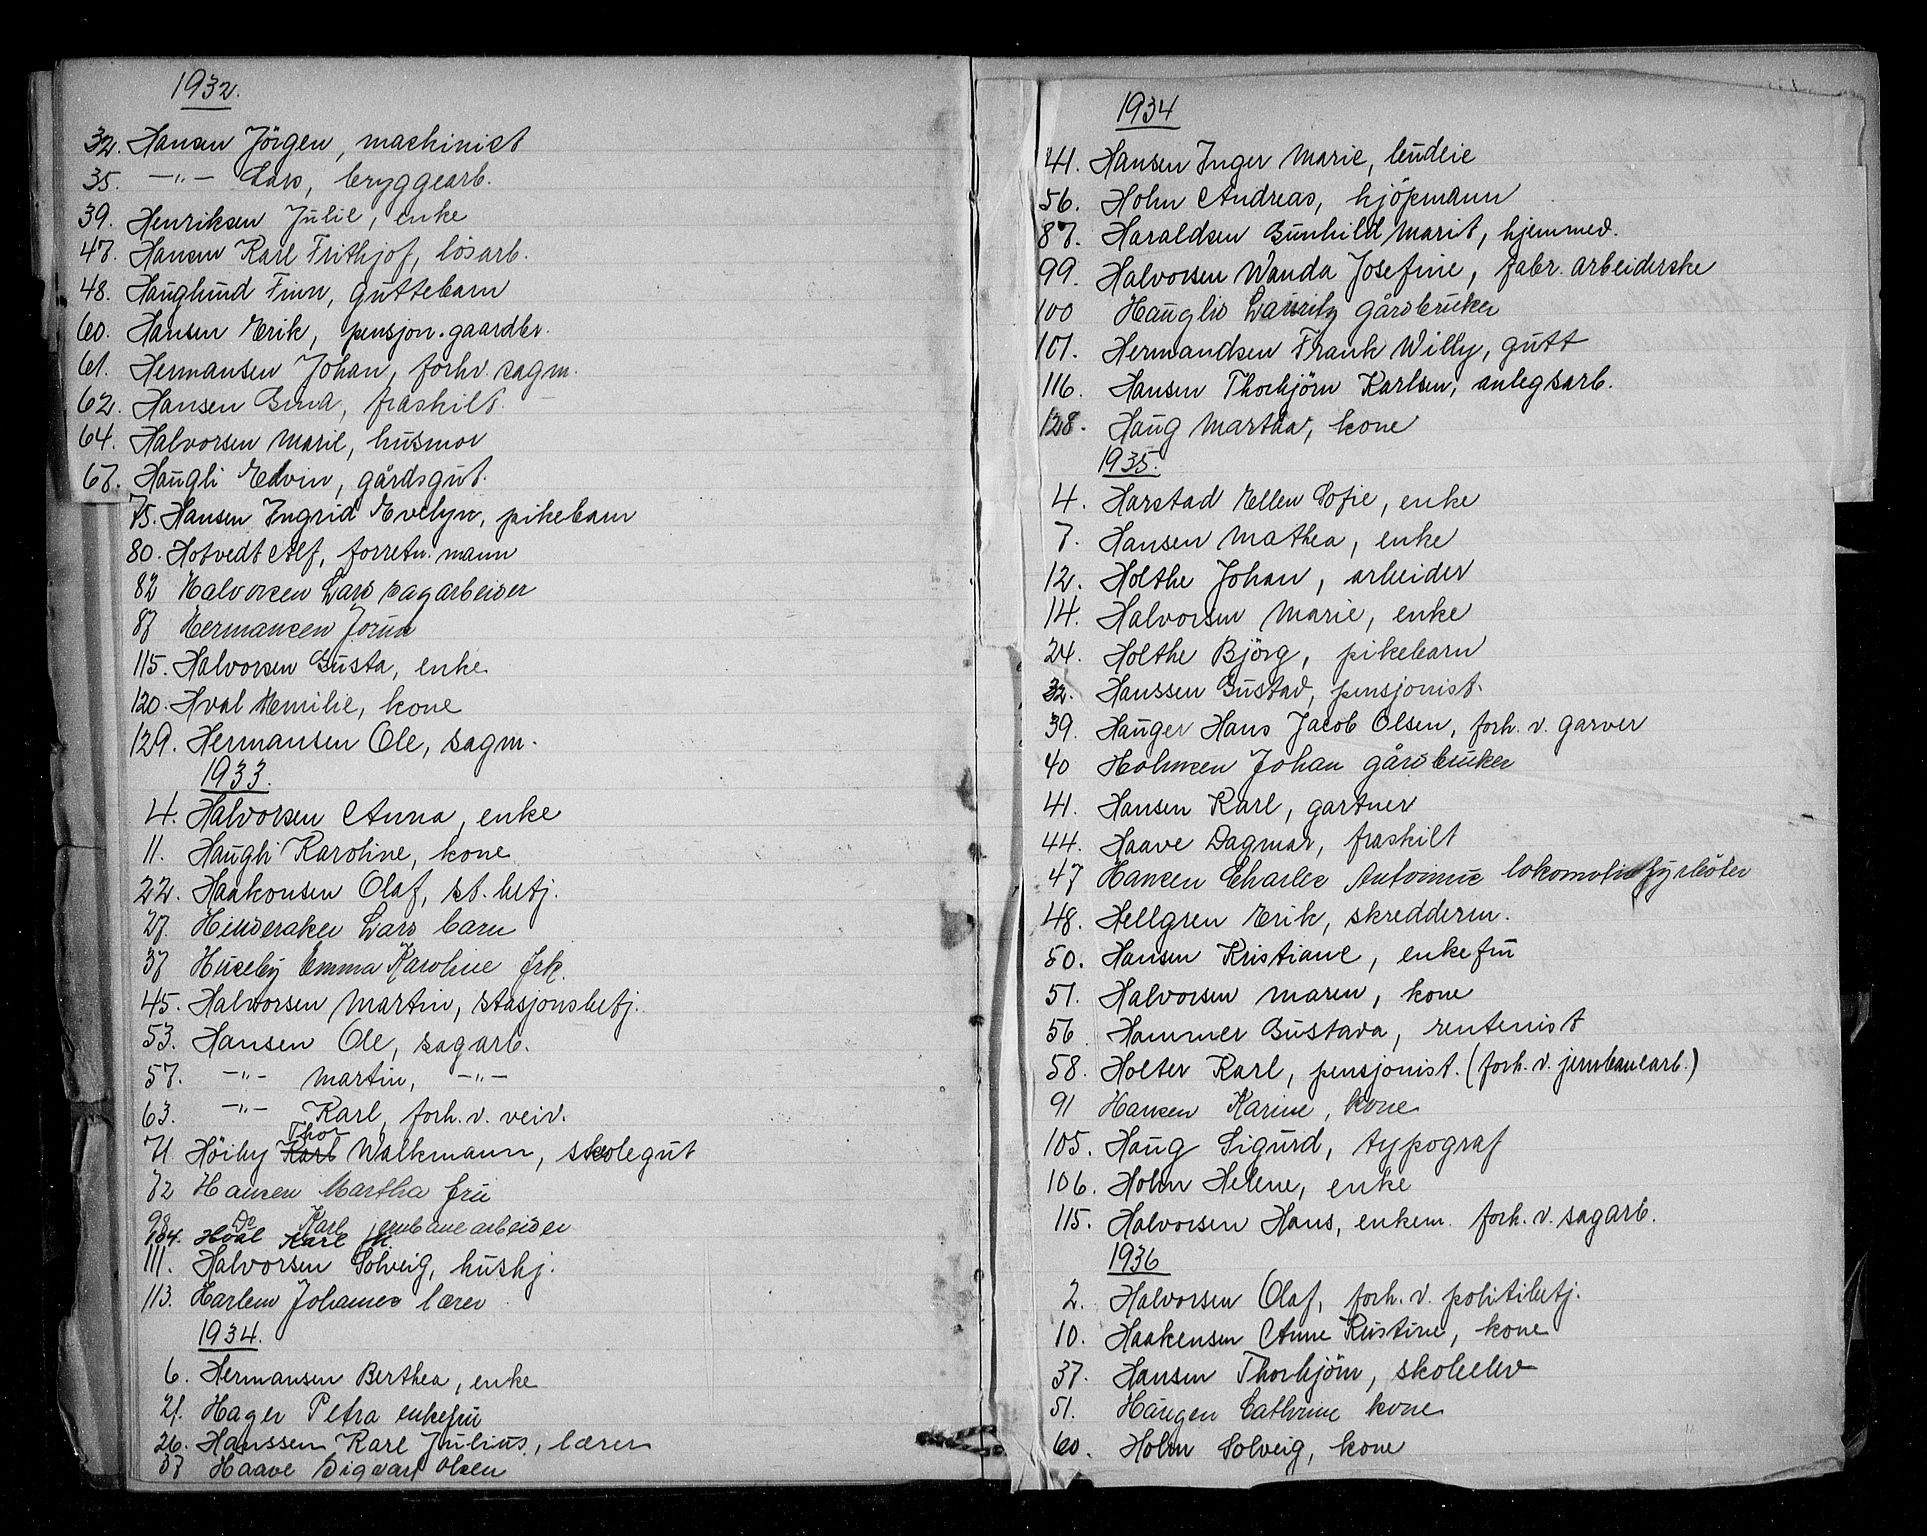 1932.
32. Hansen Jörgen, maskinist
35. —"— Lars, bryggearb.
39. Henriksen Julie, enke
47. Hansen Karl Frithjof, lösarb.
48. Hauglund Finn, guttebarn
60. Hansen Erik, pensjon. gaardbr.
61. Hermansen Johan, forhv. sagm.
62. Hansen Gina, fraskilt.
64. Halvorsen Marie, husmor
67. Haugli Edvin, gårdsgut.
75. Hansen Ingrid Evelyn, pikebarn
80. Hotvedt Alf, forretn. mann
82 Halvorsen Lars sagarbeider
87 Hermansen Jorun
115. Halvorsen Gusta, enke
120. Hval Emilie, kone
129. Hermansen Ole, sagm.
1933.
4. Halvorsen Anna, enke
11. Haugli Karoline, kone
22. Haakonsen Olaf, st. betj.
27. Hinderaker Lars barn
37 Huseby Emma Karoline frk.
45. Halvorsen Martin, stasjonsbetj.
53. Hansen Ole, sagarb.
57. —"— Martin, —"—
63. —"— Karl, forh. v. veiv.
Thor
71 Höiby Karl Walkmann, skolegut
72 Hansen Martha fru
98 Do Karl jernbanearbeider
104. Hval Karl M.
111. Halvorsen Solveig, hushj.
113. Harlem Johannes lærer
1934.
6. Hermansen Berthea, enke
21. Hager Petra enkefru
26. Hanssen Karl Julius, lærer
37 Haave Sigvart Olsen
1934
41. Hansen Inger Marie, budeie
56. Holm Andreas, kjöpmann
87. Haraldsen Gunhild Marit, hjemmed.
99. Halvorsen Wanda Josefine, fabr. arbeiderske
100 Hauglid Lauritz gårdbruker
101. Hermandsen Frank Willy, gutt
116. Hansen Thorbjörn Karlsen, anlegsarb.
128. Haug Martha, kone
1935.
4. Harstad Ellen Sofie, enke
7. Hansen Mathea, enke
12. Holthe Johan, arbeider
14. Halvorsen Marie, enke
24. Holthe Björg, pikebarn
32. Hanssen Gustav, pensjonist.
39. Hauger Hans Jacob Olsen, forh. v. garver
40 Holmsen Johan gårdbruker
41. Hansen Karl, gartner
44. Haave Dagmar, fraskilt
47 Hansen Charles Antonius lokomotivfyrböter
48. Hellgren Erik, skredderm.
50. Hansen Kristiane, enkefru
51. Halvorsen Maren, kone
56. Hammer Gustava, rentenist
58. Holter Karl, pensjonist. (forh. v. jernbanearb.)
91 Hansen Karine, kone
105. Haug Sigurd, typograf
106. Holm Helene, enke
115. Halvorsen Hans, enkem. forh. v. sagarb.
1936
2. Halvorsen Olaf, forh. v. politibetj.
10. Haakensen Anne Kristine, kone
37. Hansen Thorbjörn, skoleelev
51. Haugen Cathrine kone
60. Holm Solveig, kone